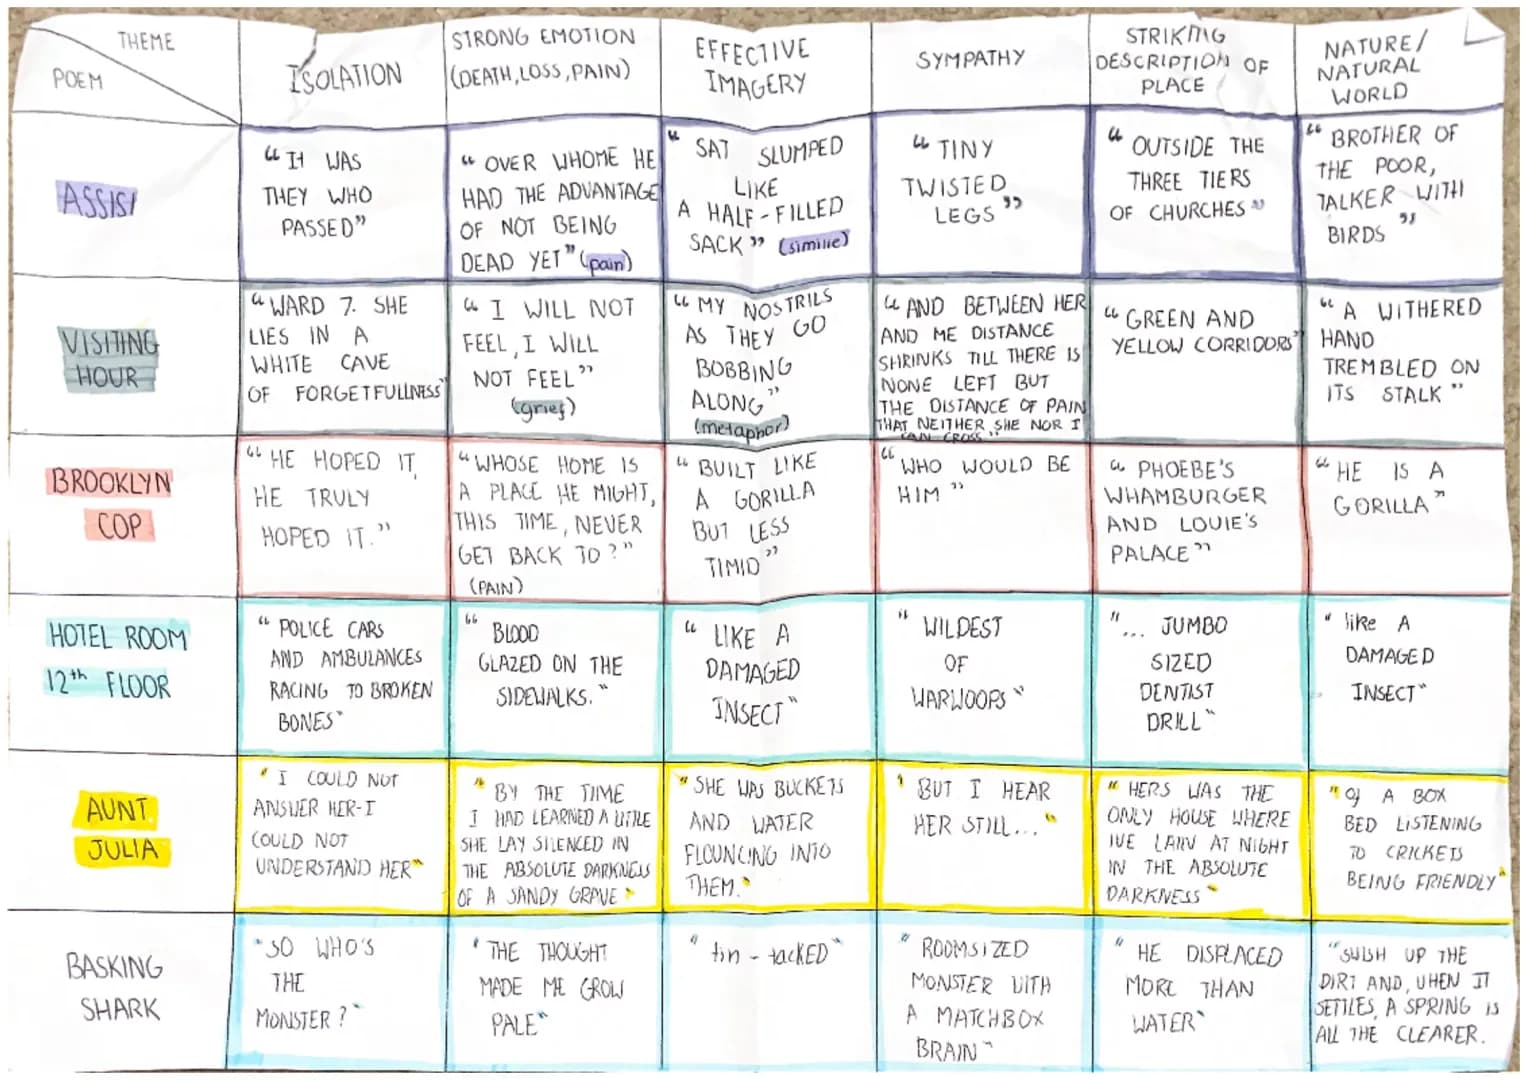 THEME
POEM
ISOLATION
STRONG EMOTION
(DEATH, LOSS, PAIN)
EFFECTIVE
IMAGERY
SYMPATHY
STRIKING
DESCRIPTION OF
PLACE
NATURE/
NATURAL
WORLD
ASSISI
"IT WAS
THEY WHO
PASSED"
"OVER WHOME HE
HAD THE ADVANTAGE
OF NOT BEING
DEAD YET" (pain)
"SAT SLUMPED
LIKE
A HALF-FILLED
SACK" (similie)
"TINY
TWISTED
LEGS"
"OUTSIDE THE
THREE TIERS
OF CHURCHES"
"BROTHER OF
THE POOR,
TALKER WITH
BIRDS"
VISITING
HOUR
"WARD 7. SHE
LIES IN A
WHITE CAVE
OF FORGETFULLNESS"
"I WILL NOT
FEEL, I WILL
NOT FEEL"
(grief)
"MY NOSTRILS
AS THEY GO
BOBBING
ALONG"
(metaphor)
"AND BETWEEN HER
AND ME DISTANCE
SHRINKS TILL THERE IS
NONE LEFT BUT
THE DISTANCE OF PAIN
THAT NEITHER SHE NOR I
CAN CROSS"
"GREEN AND
YELLOW CORRIDORS"
"A WITHERED
HAND
TREMBLED ON
ITS STALK"
BROOKLYN
COP
"HE HOPED IT,
HE TRULY
HOPED IT."
"WHOSE HOME IS
A PLACE HE MIGHT,
THIS TIME, NEVER
GET BACK TO?"
(PAIN)
"BUILT LIKE
A GORILLA
BUT LESS
TIMID"
"WHO WOULD BE
HIM"
"PHOEBE'S
WHAMBURGER
AND LOUIE'S
PALACE"
"HE IS A
GORILLA"
HOTEL ROOM
12th FLOOR
"POLICE CARS
AND AMBULANCES
RACING TO BROKEN
BONES"
"BLOOD
GLAZED ON THE
SIDEWALKS."
"LIKE A
DAMAGED
INSECT"
"WILDEST
OF
WARWOOPS"
"... JUMBO
SIZED
DENTIST
DRILL"
"like A
DAMAGED
INSECT"
AUNT
JULIA
"I COULD NOT
ANSWER HER-I
COULD NOT
UNDERSTAND HER"
"BY THE TIME
I HAD LEARNED A LITTLE
SHE LAY SILENCED IN
THE ABSOLUTE DARKNESS
OF A SANDY GRAVE"
"SHE WAS BUCKETS
AND WATER
FLOUNCING INTO
THEM."
"BUT I HEAR
HER STILL..."
"HERS WAS THE
ONLY HOUSE WHERE
IVE LAIN AT NIGHT
IN THE ABSOLUTE
DARKNESS"
"Of A BOX
BED LISTENING
TO CRICKETS
BEING FRIENDLY"
BASKING
SHARK
"SO WHO'S
THE
MONSTER?"
"THE THOUGHT
MADE ME GROW
PALE"
"tin-tacked"
"ROOMSIZED
MONSTER WITH
A MATCHBOX
BRAIN"
"HE DISPLACED
MORE THAN
WATER"
"SWISH UP THE
DIRT AND, WHEN IT
SETTLES, A SPRING IS
ALL THE CLEARER.